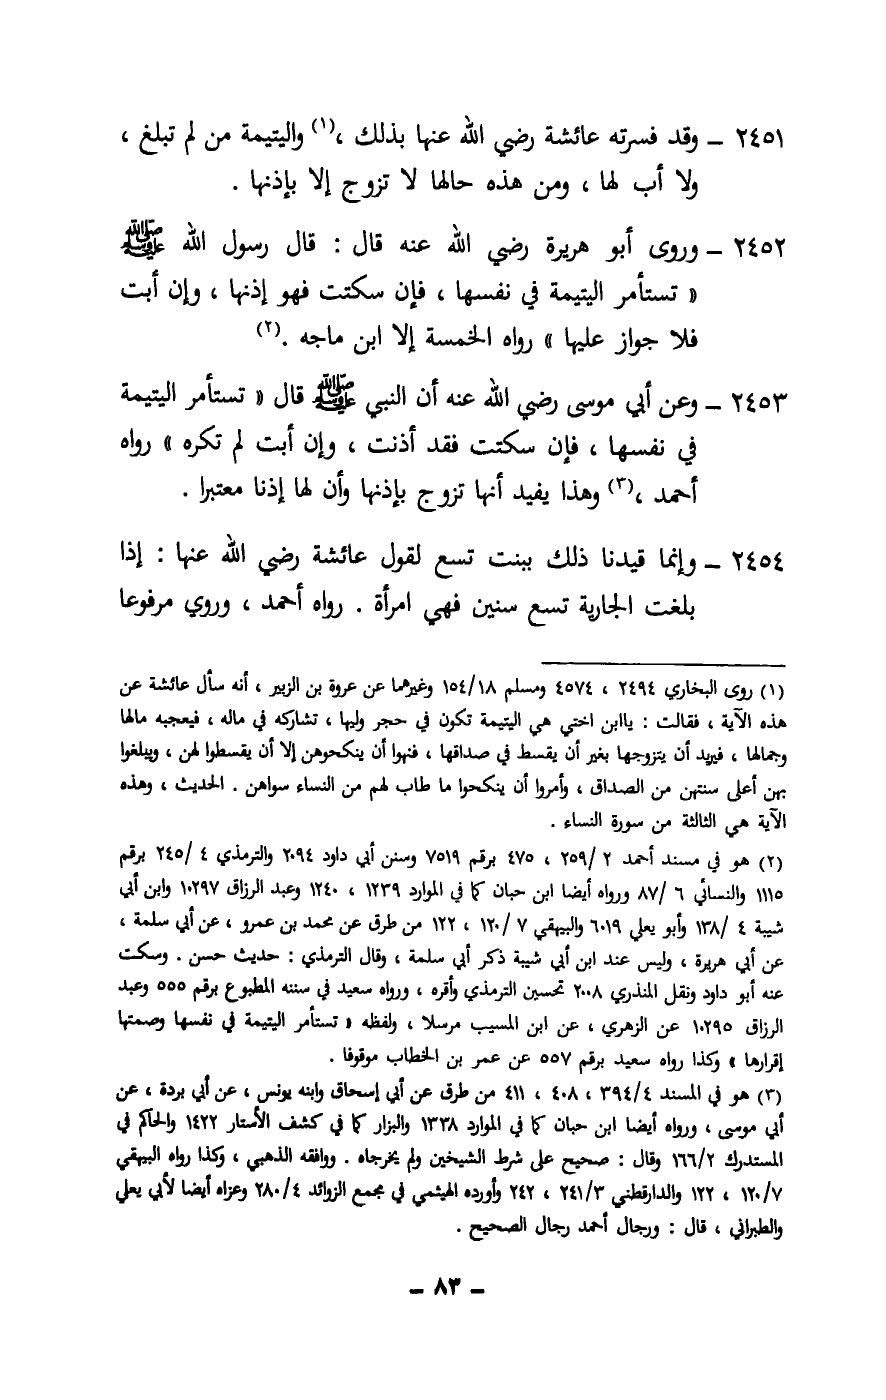 ٢٤٥١ ــ وقد فسرته عائشة رضي الله عنها بذلك ،(١) واليتيمة من لم تبلغ ،
ولا أب لها ، ومن هذه حالها لا تزوج إلا بإذنها .
٢٤٥٢ ــ وروى أبو هريرة رضي الله عنه قال : قال رسول الله ﷺ
« تستأمر اليتيمة في نفسها ، فإن سكتت فهو إذنها ، وإن أبت
فلا جواز عليها » رواه الخمسة إلا ابن ماجه .(٢)
٢٤٥٣ ــ وعن أبي موسى رضي الله عنه أن النبي ﷺ قال « تستأمر اليتيمة
في نفسها ، فإن سكتت فقد أذنت ، وإن أبت لم تكره » رواه
أحمد ،(٣) وهذا يفيد أنها تزوج بإذنها وأن لها إذنا معتبرا .
٢٤٥٤ ــ وإنما قيدنا ذلك ببنت تسع لقول عائشة رضي الله عنها : إذا
بلغت الجارية تسع سنين فهي امرأة . رواه أحمد ، وروي مرفوعا
(١) روى البخاري ٢٤٩٤ ، ٤٥٧٤ ومسلم ١٥٤/١٨ وغيرهما عن عروة بن الزبير ، أنه سأل عائشة عن
هذه الآية ، فقالت : ياابن اختي هي اليتيمة تكون في حجر وليها ، تشاركه في ماله ، فيعجبه مالها
وجمالها ، فيريد أن يتزوجها بغير أن يقسط في صداقها ، فنهوا أن ينكحوهن إلا أن يقسطوا لهن ، ويبلغوا
بهن أعلى سنتهن من الصداق ، وأمروا أن ينكحوا ما طاب لهم من النساء سواهن . الحديث ، وهذه
الآية هي الثالثة من سورة النساء .
(٢) هو في مسند أحمد ٢ /٢٥٩ ، ٤٧٥ برقم ٧٥١٩ وسنن أبي داود ٢٠٩٤ والترمذي ٤ /٢٤٥ برقم
١١١٥ والنسائي ٦ /٨٧ ورواه أيضا ابن حبان كما في الموارد ١٢٣٩ ، ١٢٤٠ وعبد الرزاق ١٠٢٩٧ وابن أبي
شيبة ٤ /١٣٨ وأبو يعلي ٦٠١٩ والبيهقي ٧ /١٢٠ ، ١٢٢ من طرق عن محمد بن عمرو ، عن أبي سلمة ،
عن أبي هريرة ، وليس عند ابن أبي شيبة ذكر أبي سلمة ، وقال الترمذي : حديث حسن . وسكت
عنه أبو داود ونقل المنذري ٢٠٠٨ تحسين الترمذي وأقره ، ورواه سعيد في سننه المطبوع برقم ٥٥٥ وعبد
الرزاق ١٠٢٩٥ عن الزهري ، عن ابن المسيب مرسلا ، ولفظه « تستأمر اليتيمة في نفسها وصمتها
إقرارها » وكذا رواه سعيد برقم ٥٥٧ عن عمر بن الخطاب موقوفا .
(٣) هو في المسند ٣٩٤/٤ ، ٤٠٨ ، ٤١١ من طرق عن أبي إسحاق وابنه يونس ، عن أبي بردة ، عن
أبي موسى ، ورواه أيضا ابن حبان كما في الموارد ١٢٣٨ والبزار كما في كشف الأستار ١٤٢٢ والحاكم في
المستدرك ١٦٦/٢ وقال : صحيح على شرط الشيخين ولم يخرجاه . ووافقه الذهبي ، وكذا رواه البيهقي
١٢٠/٧ ، ١٢٢ والدارقطني ٢٤١/٣ ، ٢٤٢ وأورده الهيثمي في مجمع الزوائد ٢٨٠/٤ وعزاه أيضا لأبي يعلي
والطبراني ، قال : ورجال أحمد رجال الصحيح .
ــ ٨٣ ــ